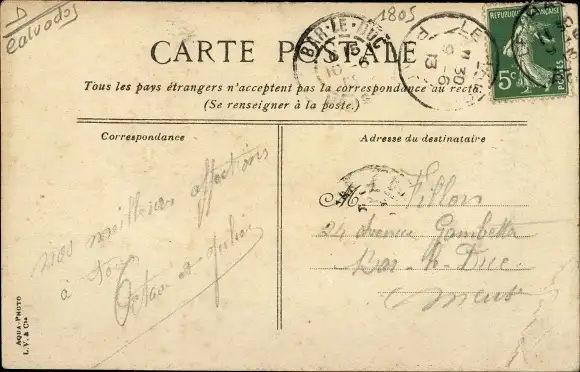 D
Calvados
1805
CARTE POSTALE
BAR-LE-DUC
RÉPUBLIQUE FRANÇAISE
5c
POSTES
Tous les pays étrangers n'acceptent pas la correspondance au recto.
(Se renseigner à la poste.)
Correspondance
Adresse du destinataire
nos meilleures affections
à tous
Octave et Julie
M. Villon
24 Avenue Gambetta
Bar-le-Duc
Meuse
AQUA-PHOTO
L. V. & Cie